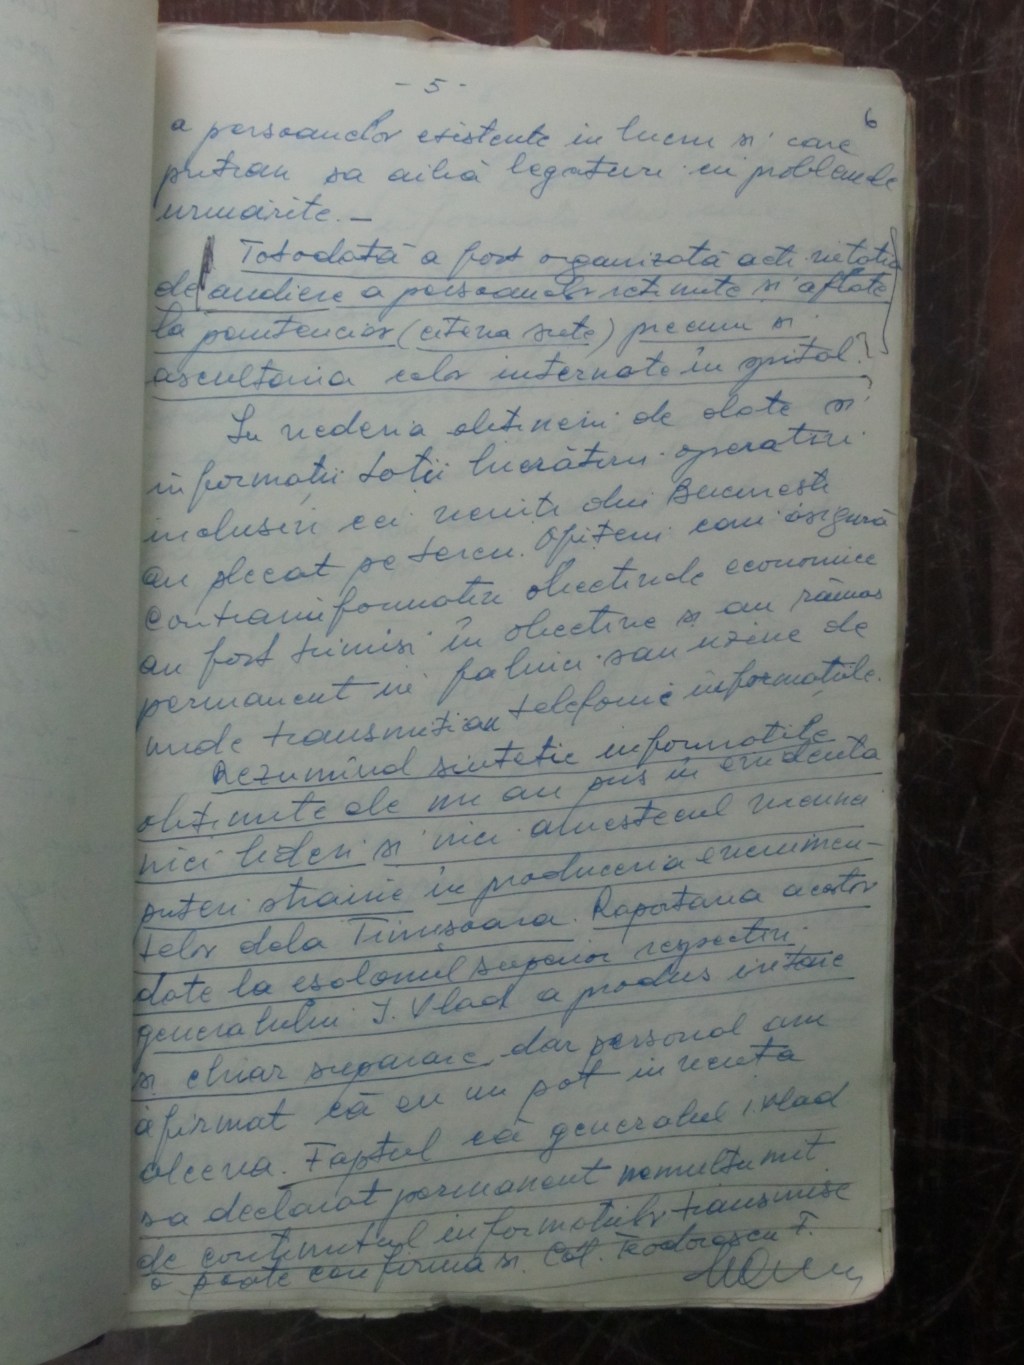 - 5 -
6
a persoanelor existente in lucru si care
puteau sa aibă legături cu problemele
urmărite. —
Totodată a fost organizată activitatea
de audiere a persoanelor retinute si aflate
la penitenciar (citeva sute) precum si
ascultarea celor internate în spital.
In vederea obtineri de date si
informatii totii lucrătorii operativi
inclusiv cei veniti din Bucuresti
au plecat pe teren. Ofiteri care asigură
contrainformativ obiectivele economice
au fost trimisi în obective si au rămas
permanent in fabrici sau uzine de
unde transmiteau telefonic informatiile.
Rezumînd sintetic informatiile
obtinute de nu au pus în evidenta
nici lideri si nici amestecul vreunei
puteri straine in producerea evenimen-
telor dela Timișoara. Raportarea acestor
date la esalonul superior respectiv
generalului I. Vlad a produs iritare
si chiar suparare dar personal am
afirmat că eu nu pot inventa
altceva. Faptul că generalul I Vlad
sa declarat permanent nemultumit
de continutul informatiilor transmise
o poate confirma si Col. Teodorescu F.